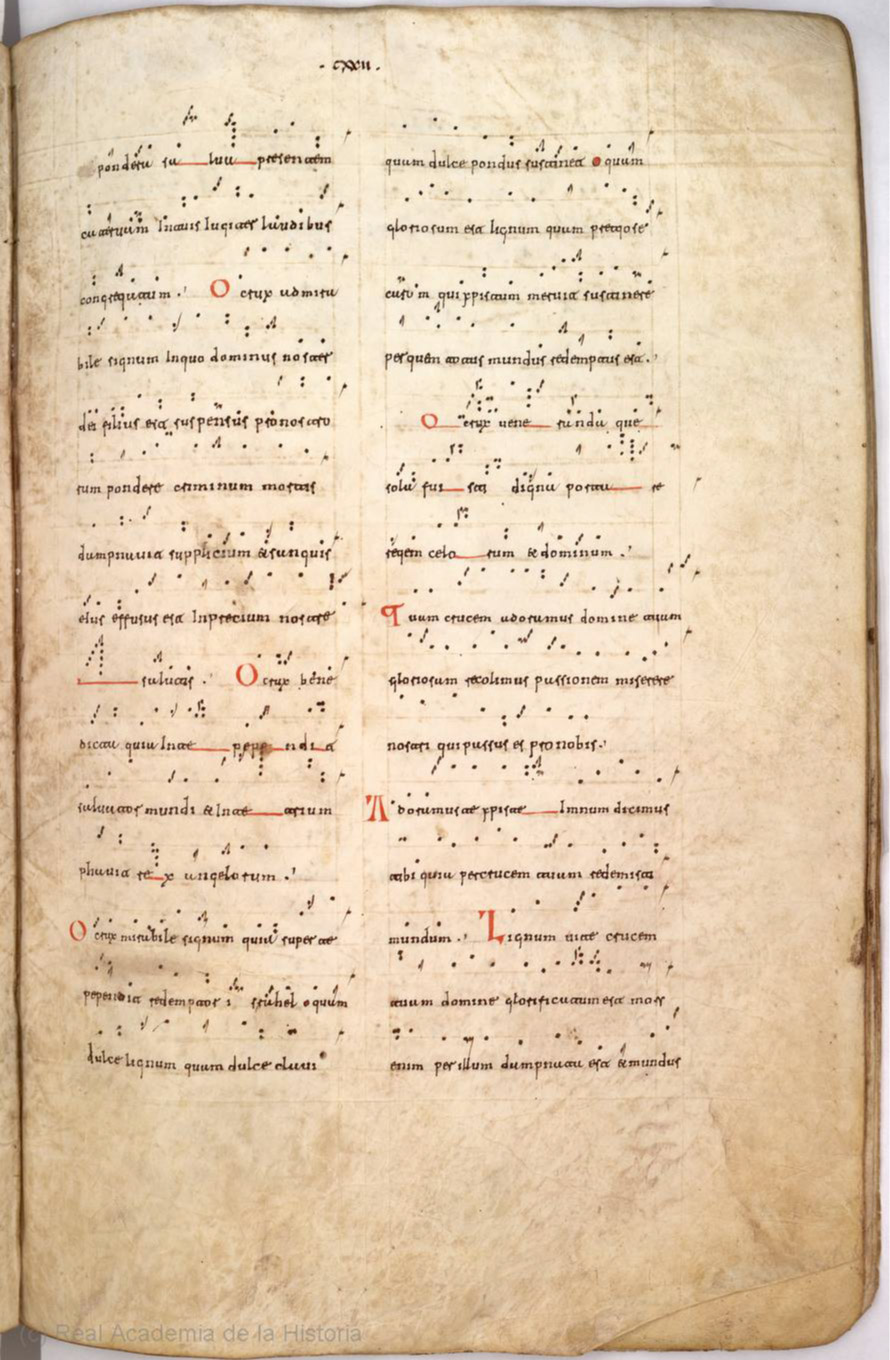 · cxxii ·
ponderu su luu presentem
cuateruum Inauis lugiter luudibus
consequatum . O crux udmiru
bile signum Inquo dominus noster
dei filius est suspensus pronostro
rum pondere criminum mortis
dumpnuuit supplicium & sunguis
eius effusus est Inprecium nostre
sulutis . O crux bene
dictu quiu Inte pependit
suluutor mundi & Inte trium
phuuit rex ungelorum .
O crux mirubile signum quiu super te
pependit redemptor isruhel o quum
dulce lignum quum dulce cluui
quum dulce pondus sustinet o quum
gloriosum est lignum quum pretiose
qui xpistum meruit sustinere
perquem totus mundus redemptus est .
O crux uenerundu que
solu fuisti dignu porture
regem celorum & dominum .
Tuum crucem udorumus domine tuum
gloriosum recolimus pussionem miserere
nostri qui pussus es pronobis .
Adorumus te xpiste Imnum dicimus
tibi quiu percrucem tuum redemisti
mundum . Lignum uite crucem
tuum domine glorificutum est mors
enim perillum dumpnutu est & mundus
(c) Real Academia de la Historia